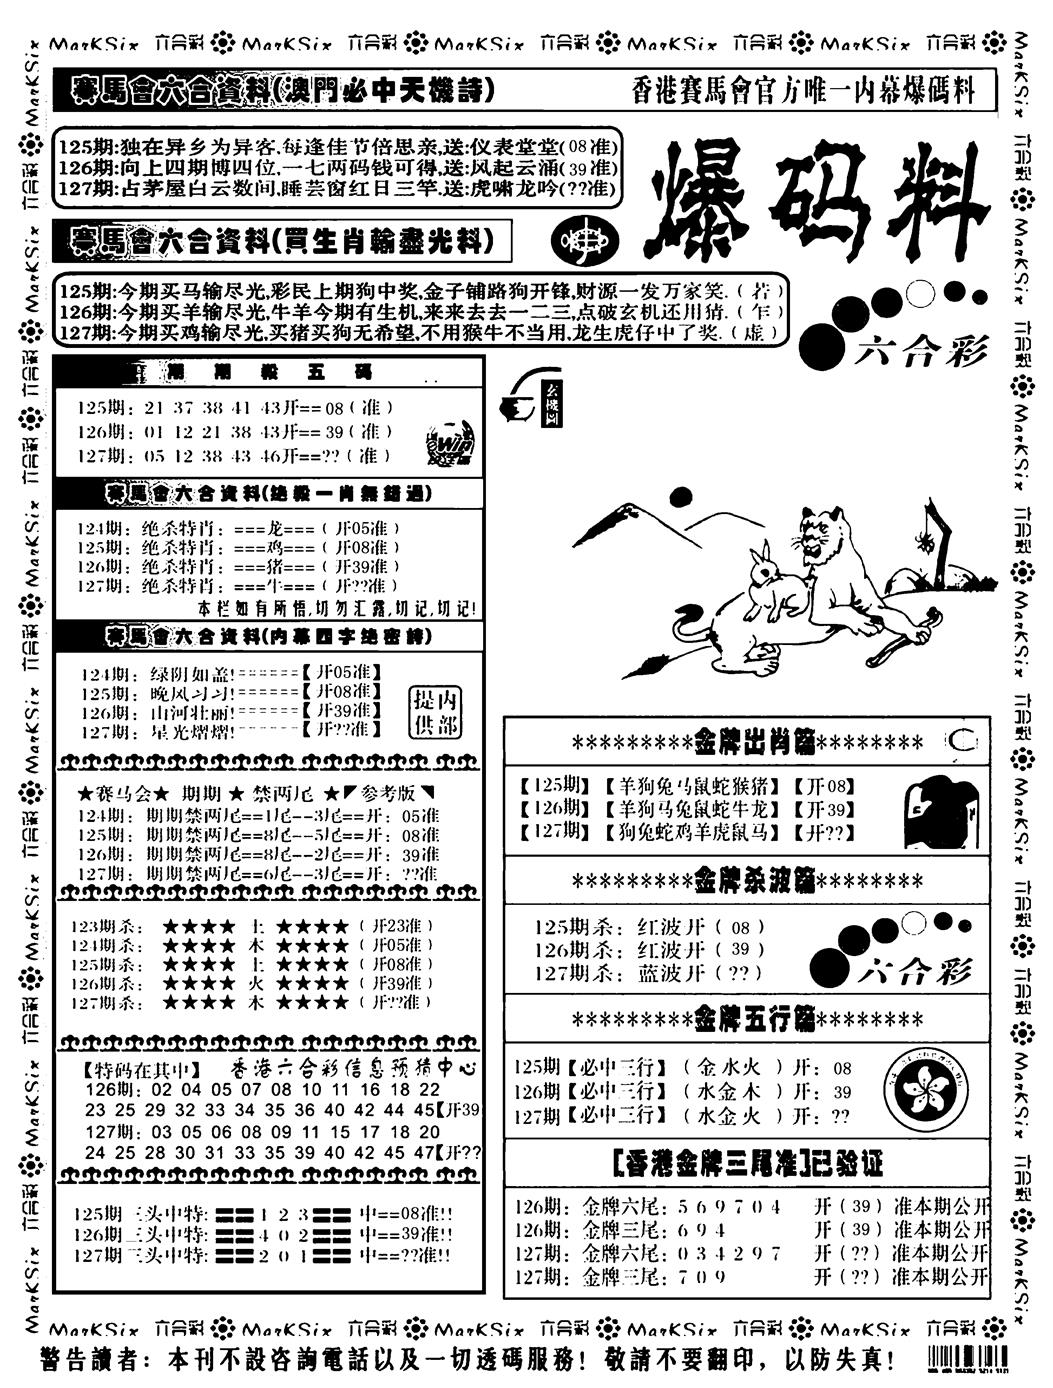 MarKSix 六合彩 MarKSix 六合彩 MarKSix 六合彩 MarKSix 六合彩 MarKSix 六合彩
賽馬會六合資料(澳門必中天機詩)
香港賽馬會官方唯一内幕爆碼料
125期:独在异乡为异客,每逢佳节倍思亲,送:仪表堂堂(08准)
126期:向上四期博四位,一七两码钱可得,送:风起云涌(39准)
127期:占茅屋白云数间,睡芸窗红日三竿,送:虎啸龙吟(??准)
爆码料
賽馬會六合資料(買生肖輸盡光料)
125期:今期买马输尽光,彩民上期狗中奖,金子铺路狗开锋,财源一发万家笑.(若)
126期:今期买羊输尽光,牛羊今期有生机,来来去去一二三,点破玄机还用猪.(乍)
127期:今期买鸡输尽光,买猪买狗无希望,不用猴牛不当用,龙生虎仔中了奖.(虚)
六合彩
期期殺五碼
125期: 21 37 38 41 43开==08(准)
126期: 01 12 21 38 43开==39(准)
127期: 05 12 38 43 46开==??(准)
玄機圖
賽馬會六合資料(绝殺一肖無錯過)
124期: 绝杀特肖: ===龙===(开05准)
125期: 绝杀特肖: ===鸡===(开08准)
126期: 绝杀特肖: ===猪===(开39准)
127期: 绝杀特肖: ===牛===(开??准)
本栏如有所悟,切勿汇露,切记,切记!
賽馬會六合資料(内幕四字绝密詩)
124期: 绿阴如盖!======【开05准】
125期: 晚风习习!======【开08准】
126期: 山河壮丽!======【开39准】
127期: 星光熠熠!======【开??准】
内部提供
★赛马会★ 期期 ★ 禁两尾 ★参考版
124期: 期期禁两尾==1尾--3尾==开: 05准
125期: 期期禁两尾==8尾--5尾==开: 08准
126期: 期期禁两尾==8尾--2尾==开: 39准
127期: 期期禁两尾==6尾--3尾==开: ??准
123期杀: ★★★★ 土 ★★★★(开23准)
124期杀: ★★★★ 木 ★★★★(开05准)
125期杀: ★★★★ 土 ★★★★(开08准)
126期杀: ★★★★ 火 ★★★★(开39准)
127期杀: ★★★★ 木 ★★★★(开??准)
【特码在其中】 香港六合彩信息预猜中心
126期: 02 04 05 07 08 10 11 16 18 22
23 25 29 32 33 34 35 36 40 42 44 45【开39
127期: 03 05 06 08 09 11 15 17 18 20
24 25 28 30 31 33 35 39 40 42 45 47【开??
125期 三头中特: 1 2 3 中==08准!!
126期 三头中特: 4 0 2 中==39准!!
127期 三头中特: 2 0 1 中==??准!!
*********金牌出肖篇********
【125期】【羊狗兔马鼠蛇猴猪】【开08】
【126期】【羊狗马兔鼠蛇牛龙】【开39】
【127期】【狗兔蛇鸡羊虎鼠马】【开??】
*********金牌杀波篇********
125期杀: 红波开(08)
126期杀: 红波开(39)
127期杀: 蓝波开(??)
六合彩
*********金牌五行篇********
125期【必中三行】(金水火)开: 08
126期【必中三行】(水金木)开: 39
127期【必中三行】(水金火)开: ??
[香港金牌三尾准]已验证
126期: 金牌六尾: 5 6 9 7 0 4 开(39)准本期公开
126期: 金牌三尾: 6 9 4 开(39)准本期公开
127期: 金牌六尾: 0 3 4 2 9 7 开(??)准本期公开
127期: 金牌三尾: 7 0 9 开(??)准本期公开
MarKSix 六合彩 MarKSix 六合彩 MarKSix 六合彩 MarKSix 六合彩 MarKSix 六合彩
警告讀者: 本刊不設咨詢電話以及一切透碼服務! 敬請不要翻印, 以防失真!